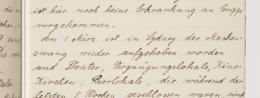 ist hier noch keine Erkrankung an Grippe
vorgekommen.
Am 1. März ist in Sydney der Masken-
zwang wieder aufgehoben worden
und Theater, Vergnügungslokale, Kinos
Kirchen, Bierlokale, die während der
letzten 5 Wochen geschlossen waren, sind